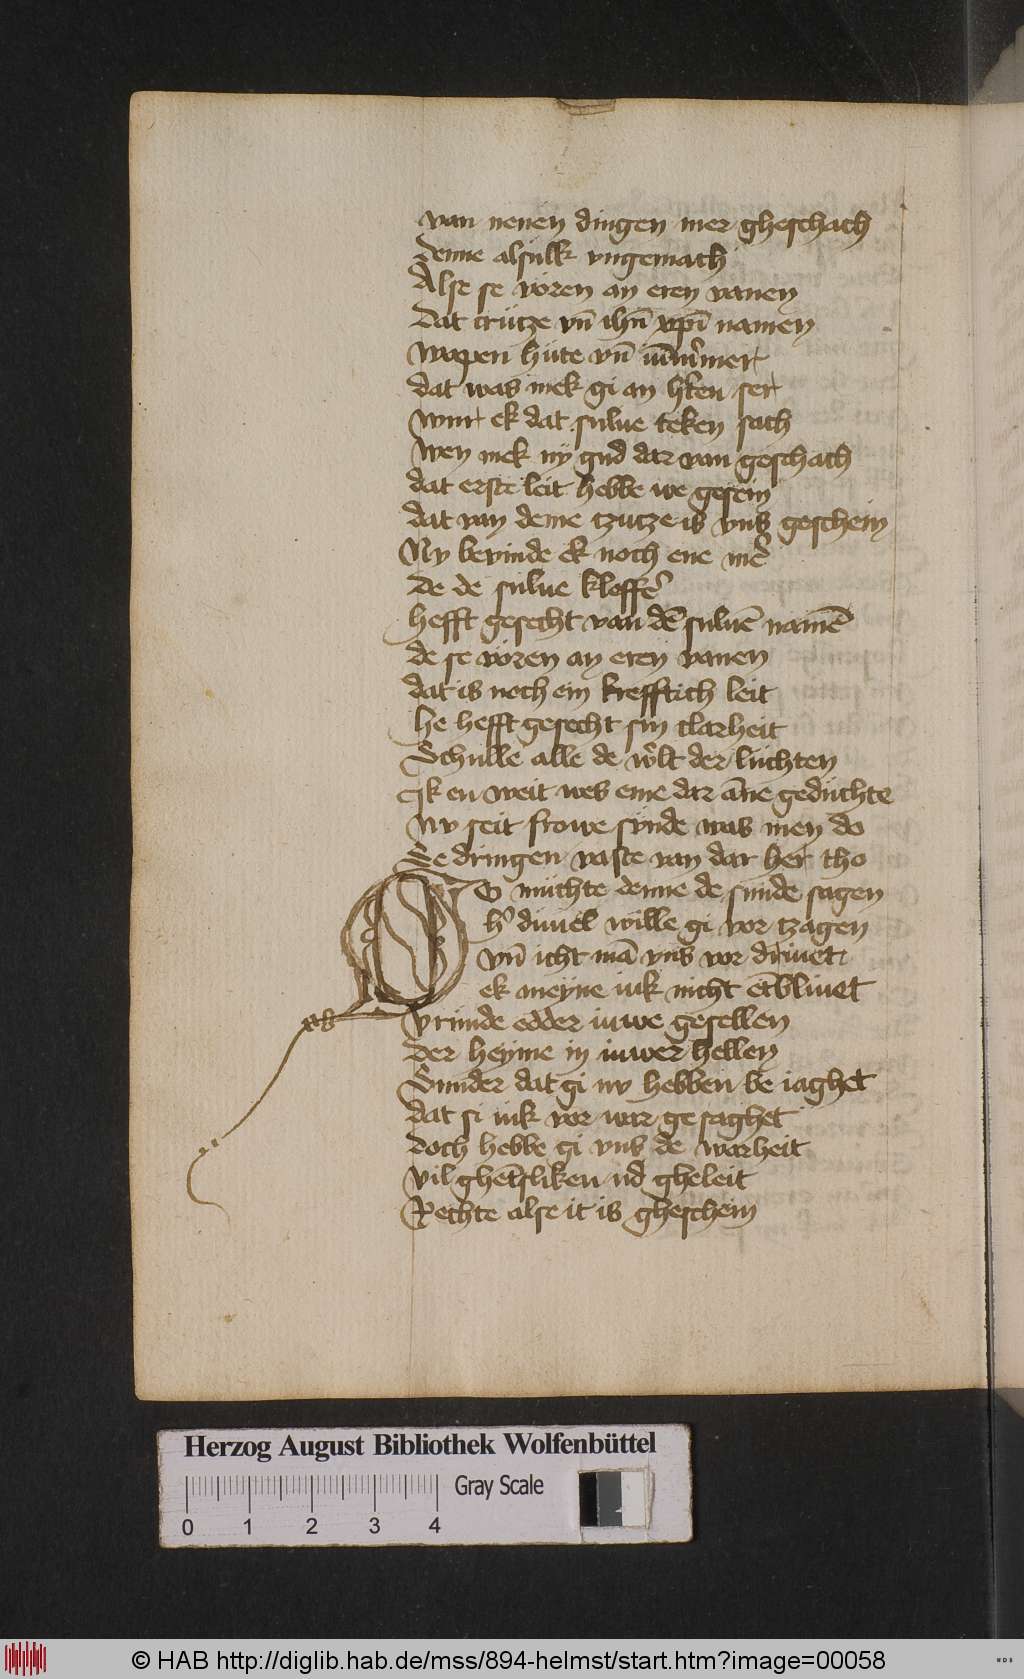 van nenen dingen mer gheschach
denne alsulk vngemach
Alse se vören an eren vanen
dat crütze vn̄ ihū xpī namen
wopen hüte vn̄ ūmer
dat was mek gi an ser
wur ek dat sulue teken sach
wen mek ny gud dar van geschach
dat erste leit hebbe we gesein
dat van deme tzutze is vns geschein
Nv bevinde ek noch ene mer̄
de de sulue kloffer̄
hefft gesecht van dē suluē namē
de se vören an eren vanen
dat is noch ein krefftich leit
he hefft gesecht sin clarheit
Schulle alle de w̄lt der lüchten
Jk en weit wes eme dar āne gedüchte
Nv seit frowe sünde was men do
Se dringen vaste van dar her tho
O müchte denne de sunde sagen
h̄ duuel wille gi vor tzagen
vn̄ icht mā vns vor driuet
ek meyne iuk nicht ētbliuet
vrunde edder iuwe gesellen
der heyme in iuwer hellen
Sunder dat gi nv hebben be iaghet
dat si iuk vor war gesaghet
doch hebbe gi vns de warheit
vil ghētsliken nd gheleit
Rechte alse it is gheschein
Herzog August Bibliothek Wolfenbüttel
Gray Scale
0 1 2 3 4
© HAB http://diglib.hab.de/mss/894-helmst/start.htm?image=00058